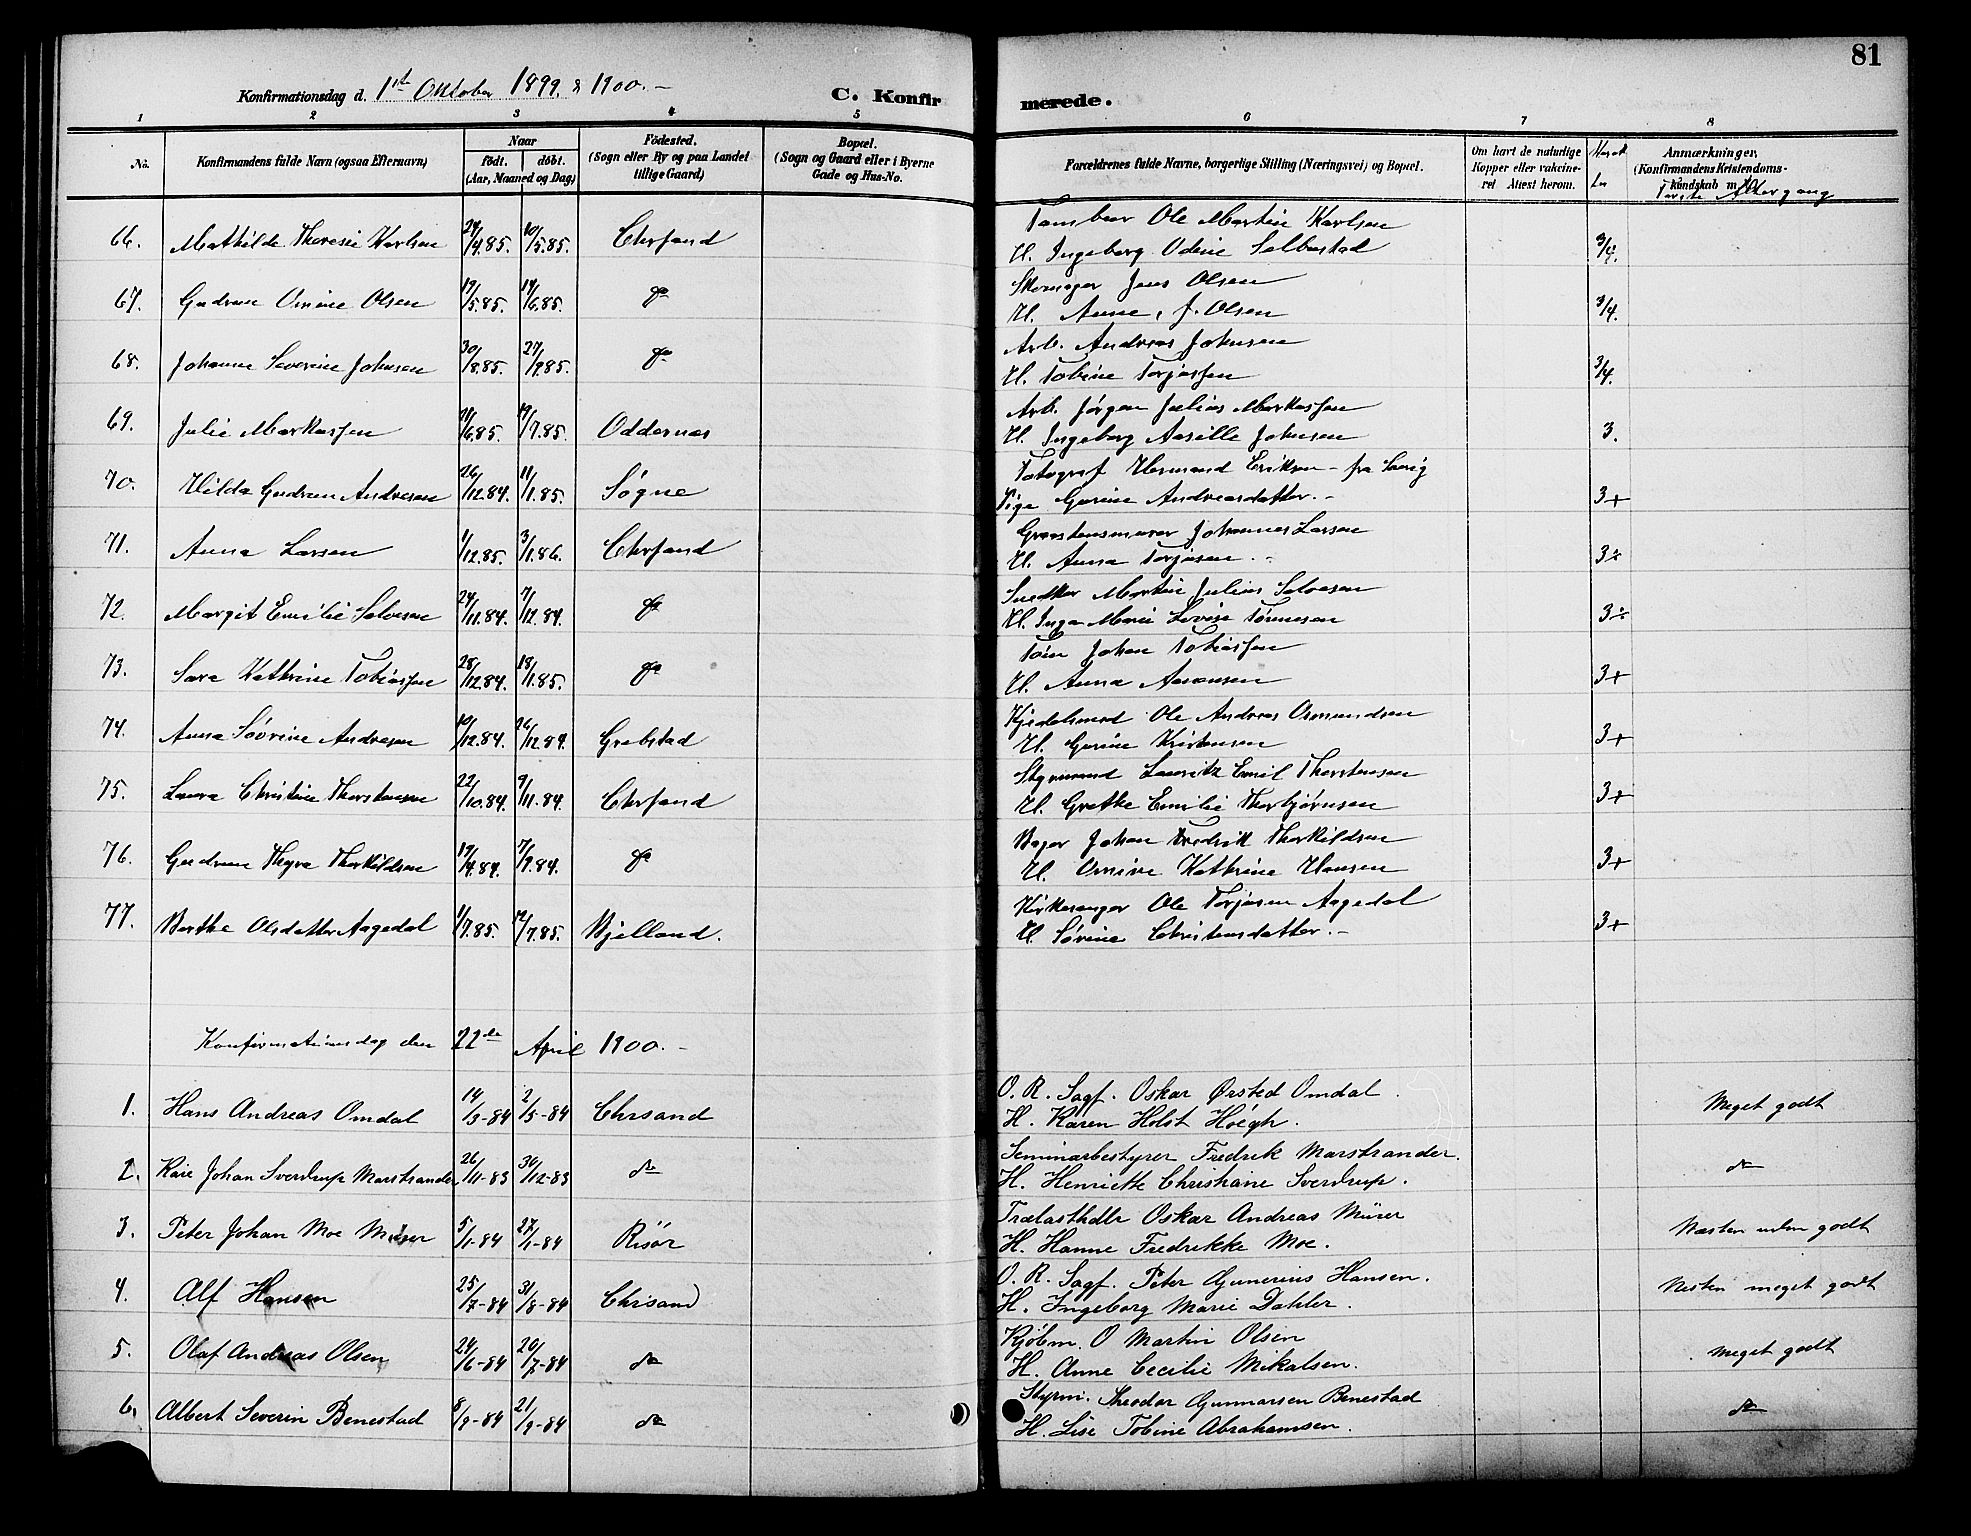 81
Konfirmationsdag d. 1ste Oktober 1899. & 1900. –
C. Konfirmerede.
1 2 3 4 5 6 7 8
No. Konfirmandens fulde Navn (ogsaa Efternavn) Naar födt. döbt. (Aar, Maaned og Dag) Födested. (Sogn eller By og paa Landet tillige Gaard) Bopæl. (Sogn og Gaard eller i Byerne Gade og Hus-No. Forældrenes fulde Navne, borgerlige Stilling (Næringsvei) og Bopæl. Om havt de naturlige Kopper eller vakcineret. Attest herom. Anmærkninger, (Konfirmandens Kristendomskundskab m. v.) Første Altergang
Tambur Ole Martin Karlsen
66. Mathilde Theresie Karlsen 24/4.85. 10/5.85. Chrsand H. Ingeborg Odine Salbostad 3/4.
Skomager Jens Olsen
67. Gudrun Omine Olsen 19/5.85. 14/6.85. do H. Anne, J. Olsen 3/4.
Arb. Andreas Johnsen
68. Johanne Severine Johnsen 30/8.85. 27/9.85. do H. Tobine Torjussen 3/4.
Arb. Jörgen Julius Markussen
69. Julie Markussen 21/6.85. 19/7.85. Oddernes H. Ingeborg Aasille Johnsen 3.
Fotograf Hermand Eriksen – fra Sverig
70. Hilda Gudrun Andresen 26/12.84. 11/1.85. Søgne Pige Gurine Andreasdatter. – 3+
Graastensmurer Johannes Larsen
71. Anna Larsen 1/12.85. 3/1.86. Chrsand H. Anna Torjusen. – 3÷
Snedker Martin Julius Salvesen
72. Margit Emilie Salvesen 24/11.84. 7/12.84. do H. Inga Marie Lovise Tönnesen 3÷
Töm Johan Tobiassen
73. Sara Kathrine Tobiassen 28/12.84. 18/1.85. do H. Anna Aanensen 3+
Kjedelsmed Ole Andreas Osmundsen
74. Anna Söverine Andresen 10/12.84. 26/12.84. Grebstad H. Gurine Kristensen 3+
Styrmand Lauritz Emil Thorstensen
75. Laura Christine Thorstensen 22/10.84. 9/11.84. Chrsand H. Grethe Emilie Thorbjørnsen 3+
Bager Johan Fredrik Thorkildsen
76. Gudrun Thyra Thorkildsen 19/4.84. 7/9.84. do H. Omine Kathrine Hansen 3+
Kirkesanger Ole Torjusen Aagedal
77. Berthe Olsdatter Aagedal 1/7.85. 12/7.85. Bjelland. H. Sørine Christensdatter. – 3+
Konfirmationsdag den 22de April 1900. –
O. R. Sagf. Oskar Ørsted Omdal.
1. Hans Andreas Omdal 14/3-84 2/5-84 Chrsand H. Karen Holst Höegh. Meget godt
Seminarbestyrer Fredrik Marstrander.
2. Kåre Johan Sverdrup Marstrander. 26/11-83 30/12-83 do H. Henriette Christiane Sverdrup. do
Trælasthdlr Oskar Andreas Mürer
3. Peter Johan Moe Mürer 5/1-84 27/1-84 Risør H. Hanne Fredrikke Moe. Næsten uden godt
O. R. Sagf. Peter Gunerius Hansen.
4. Alf Hansen 25/7-84 31/8-84 Chrsand H. Ingeborg Marie Dahler. Nesten meget godt
Kjøbm. O Martin Olsen
5. Olaf Andreas Olsen 24/6-84 20/7-84 do H. Anne Cecilie Mikalsen. Meget godt
Styrm. Theodor Gunnarsen Benestad
6. Albert Severin Benestad 8/9-84 21/9-84 do H. Lise Tobine Abrahamsen. do